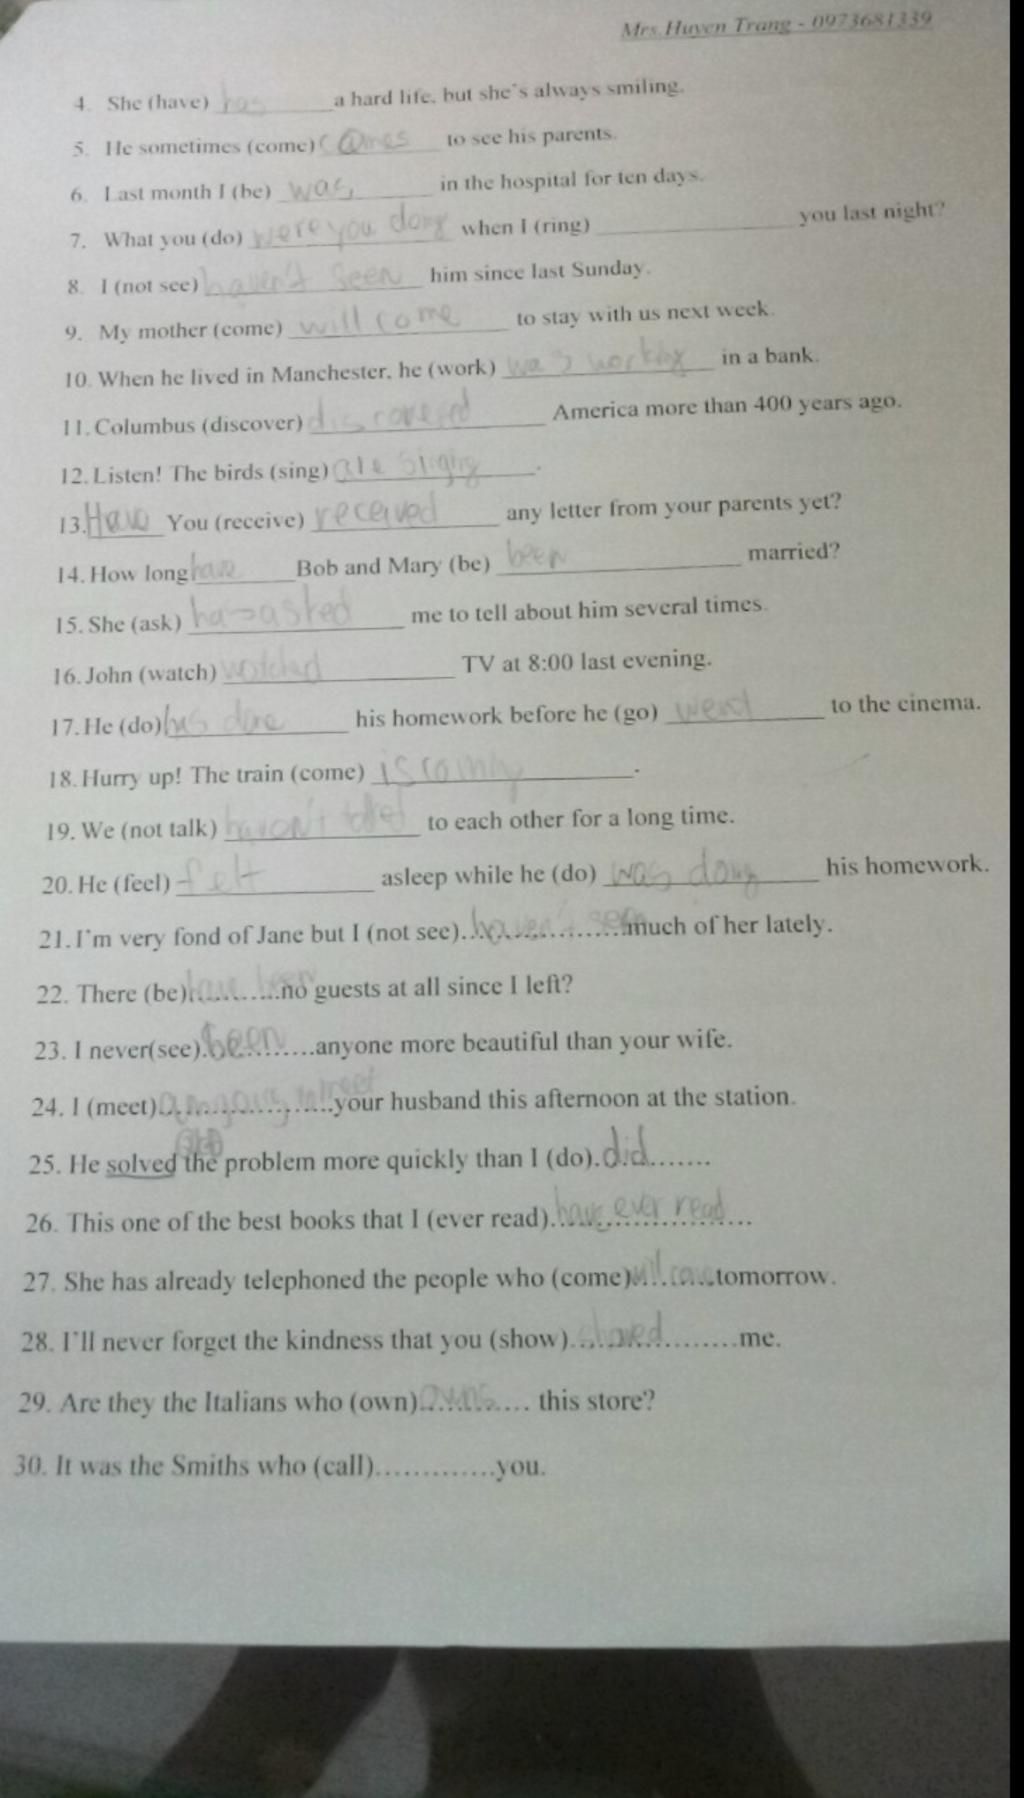 Mrs.Huyen Trang - 0973681339
4. She (have) has a hard life, but she's always smiling.
5. He sometimes (come) comes to see his parents.
6. Last month I (be) was in the hospital for ten days.
7. What you (do) were you doing when I (ring) ____________ you last night?
8. I (not see) haven't seen him since last Sunday.
9. My mother (come) will come to stay with us next week.
10. When he lived in Manchester, he (work) was working in a bank.
11. Columbus (discover) discovered America more than 400 years ago.
12. Listen! The birds (sing) are singing.
13. Have You (receive) received any letter from your parents yet?
14. How long have Bob and Mary (be) been married?
15. She (ask) has asked me to tell about him several times.
16. John (watch) watched TV at 8:00 last evening.
17. He (do) has done his homework before he (go) went to the cinema.
18. Hurry up! The train (come) is coming.
19. We (not talk) haven't to each other for a long time.
20. He (feel) felt asleep while he (do) was doing his homework.
21. I'm very fond of Jane but I (not see) haven't seen much of her lately.
22. There (be) have been no guests at all since I left?
23. I never(see) been anyone more beautiful than your wife.
24. I (meet) am going to meet your husband this afternoon at the station.
25. He solved the problem more quickly than I (do) did
26. This one of the best books that I (ever read) have ever read
27. She has already telephoned the people who (come) will come tomorrow.
28. I'll never forget the kindness that you (show) showed me.
29. Are they the Italians who (own) owns this store?
30. It was the Smiths who (call).............you.